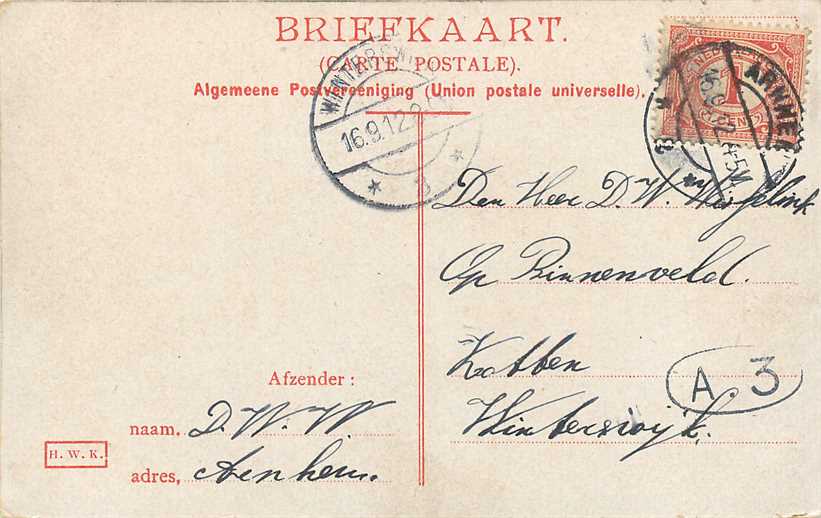 BRIEFKAART.
(CARTE POSTALE).
Algemeene Postvereeniging (Union postale universelle).
WINTERSWIJ
16.9.12
3
ARNHE
8
1
Den Heer D. W. Wisselink
Op Binnenveld.
Kotten
A 3
Winterswijk.
Afzender :
naam, D. W. W.
adres, Arnhem.
H. W. K.